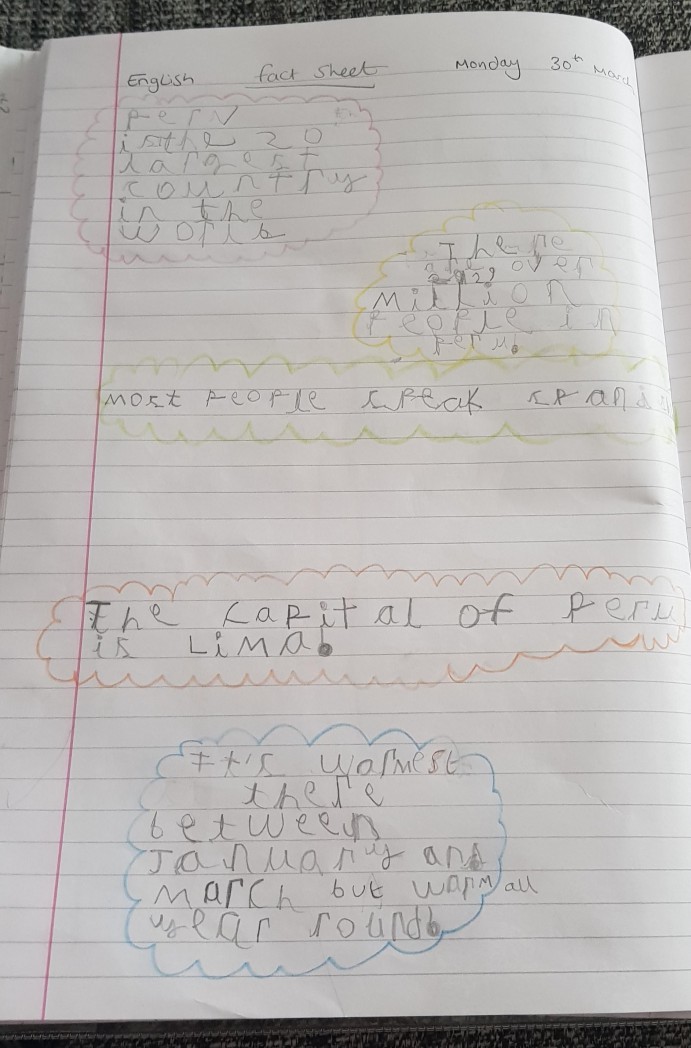 English fact sheet Monday 30th March
Peru
is the 20
largest
country
in the
world
There
are over
29
million
People in
Peru.
Most People speak spanis
The capital of Peru
is Lima.
It's warmest
there
between
January and
March but warm all
year round.